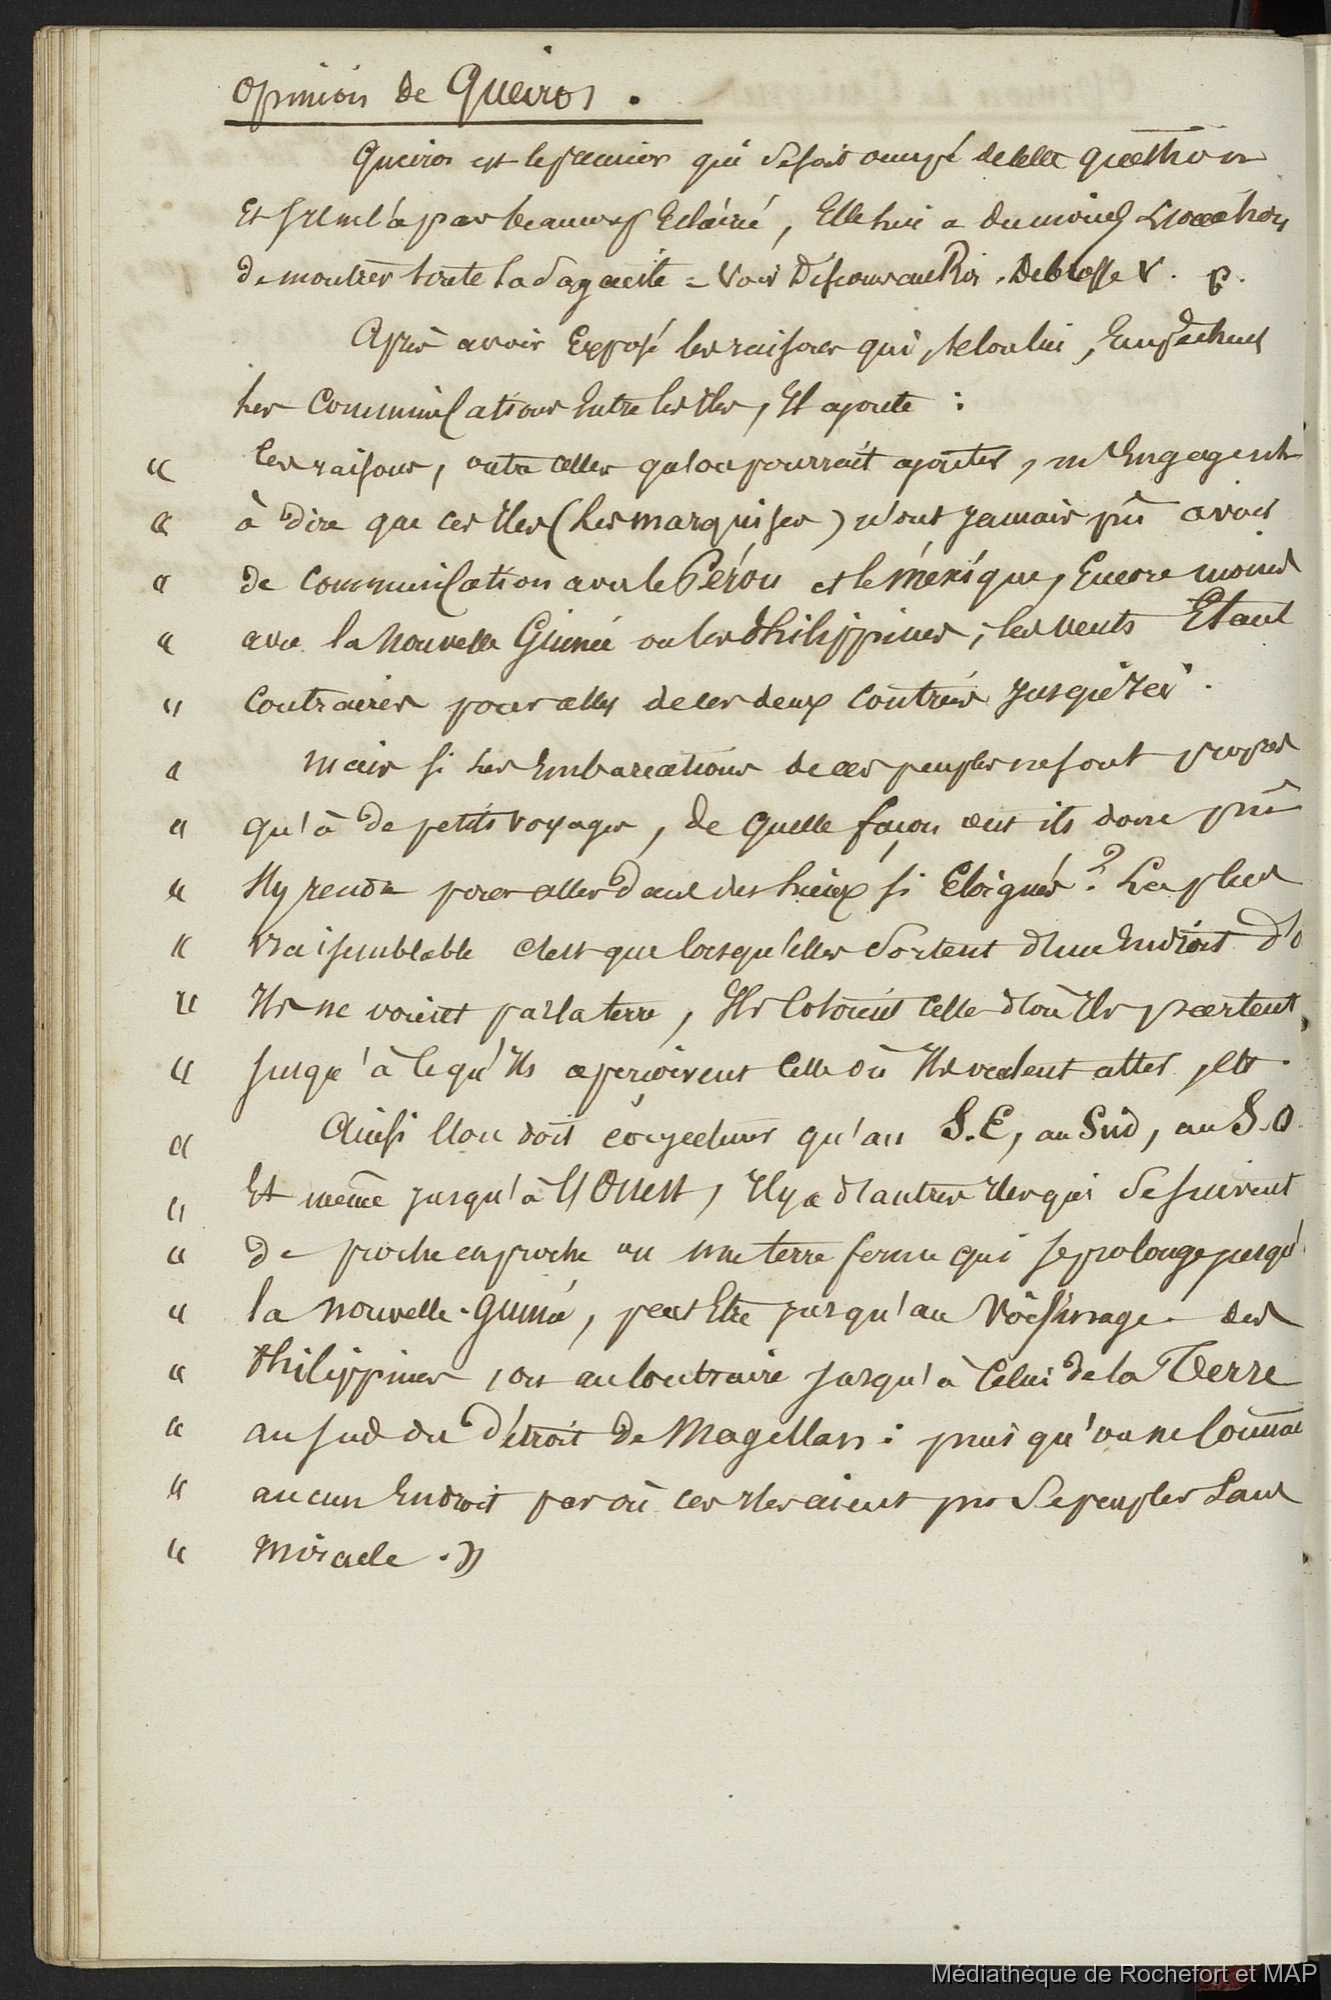 Opinion de Queiros.
Queiros est le premier qui se soit occupé de cette question
Et s'il ne l'a pas beaucoup Eclairé, Elle lui a du moins
de montrer toute sa sagacité = Voir Discours au Roi. Debrosse V. p.
Après avoir Exposé les raisons qui, selon lui, Empêchent
les Communications Entre les Iles, Il ajoute :
" Ces raisons, outre celles qu'on pourrait ajouter, m'Engagent
" à dire que ces Iles (les marquises) n'ont jamais pû avoir
" de Communication avec le Pérou et le méxique, Encore moins
" avec la Nouvelle Guinée ou les Philippines, les vents Etant
" Contraires pour aller de ces deux Contrées jusqu'Ici.
" Mais si les Embarcations de ces peuples ne sont propres
" qu'à de petits voyages, de quelle façon ont ils donc pû
" s'y rendre pour aller dans des lieux si Eloignés ? Le plus
" vraisemblable c'est que lorsqu'elles sortent d'un Endroit d'o
" Ils ne voient pas la terre, Ils Cotoient Celle d'où Ils partent
" jusqu'à ce qu'Ils aperçoivent Celle où Ils veulent aller, etc.
" Ainsi l'on doit conjecturer qu'au S.E, au Sud, au S.O.
" Et même jusqu'à l'Ouest, Il y a d'autres Iles qui se suivent
" de proche en proche ou une terre ferme qui se prolonge jusqu'
" la Nouvelle-Guinée, peut Etre jusqu'au Voisinage des
" Philippines, ou au Contraire jusqu'à Celui de la Terre
" au sud du Détroit de Magellan : puis qu'on ne Connai
" aucun Endroit par où ces Iles aient pu se peupler Sans
" Miracle. »
Médiathèque de Rochefort et MAP